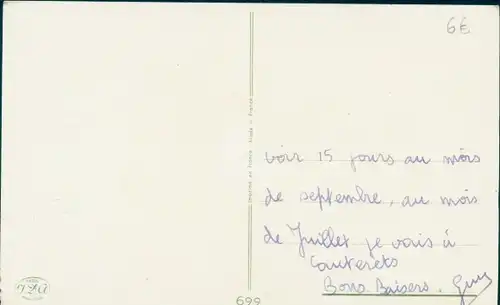 6€
voir 15 jours au mois
de septembre, au mois
de Juillet je vais à
Cauterets
Bons Baisers. Guy
Imprimé en France
699